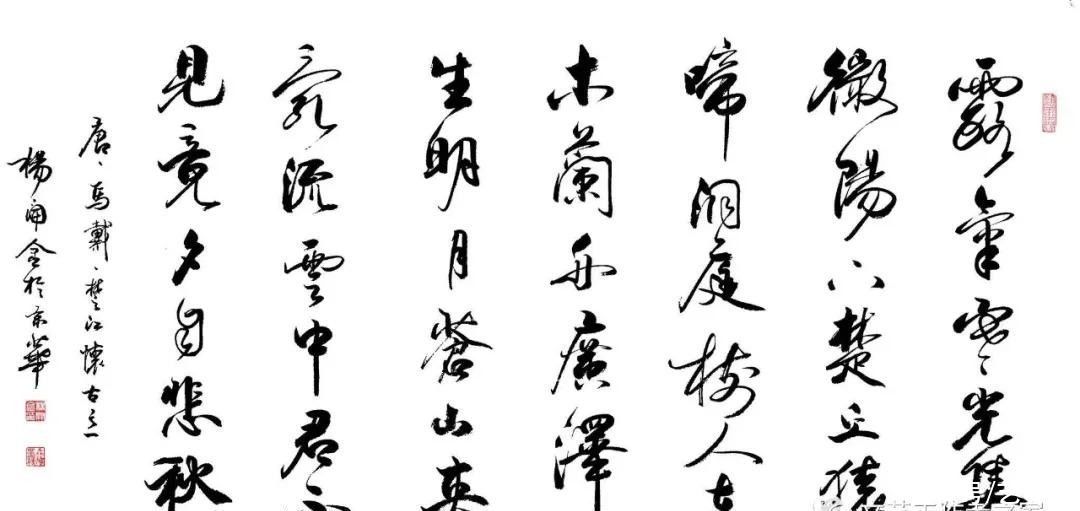 露氣寒光集
微陽下楚丘猿
啼洞庭樹人在
木蘭舟廣澤
生明月蒼山夾
亂流雲中君不
見竟夕自悲秋
唐、馬戴、楚江懷古之一
楊金於京華